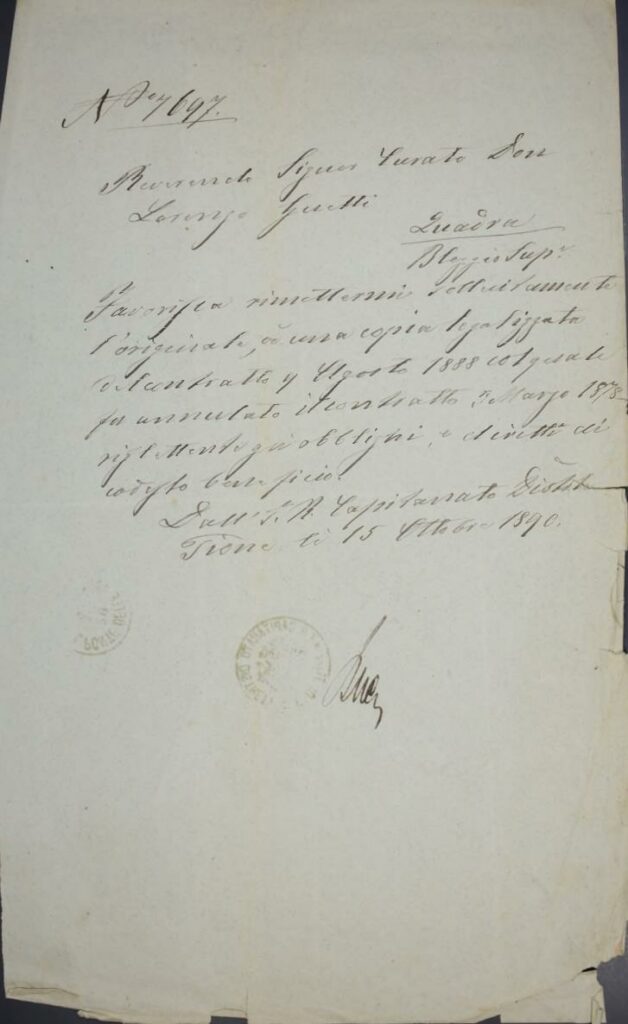 No 7697.
Reverendo Signor Curato Don
Lorenzo Guetti
Quadra
Bleggio Supr
Favorisca rimettermi sollecitamente
l'originale, od una copia legalizzata
del contratto 9 Agosto 1888 col quale
fu annullato il contratto 3 Marzo 1878
riflettente gli obblighi, e diretti di
codesto beneficio.
Dall' I. R. Capitanato Distle
Tione li 15 Ottobre 1890.